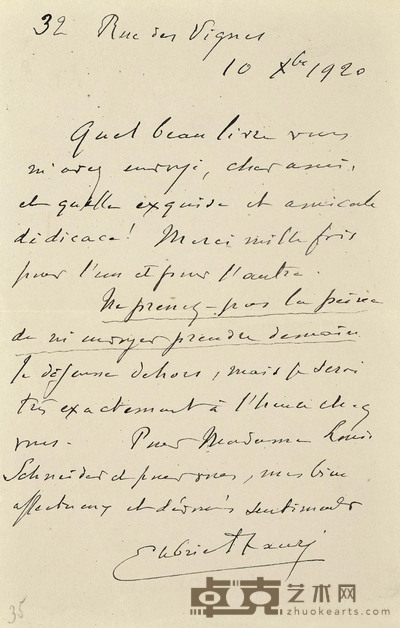 32 Rue des Vignes
10 Xbre 1920
Quel beau livre vous
m'avez envoyé, cher ami,
et quelle exquise et amicale
dédicace! Merci mille fois
pour l'un et pour l'autre.
Ne prenez-pas la peine
de m'envoyer prendre demain
Je déjeune dehors, mais je serai
très exactement à l'heure chez
vous. Pour Madame Louis
Schneider et pour vous, mes bien
affectueux et dévoués sentiments
Gabriel Fauré
35
卓克艺术网
zhuokearts.com